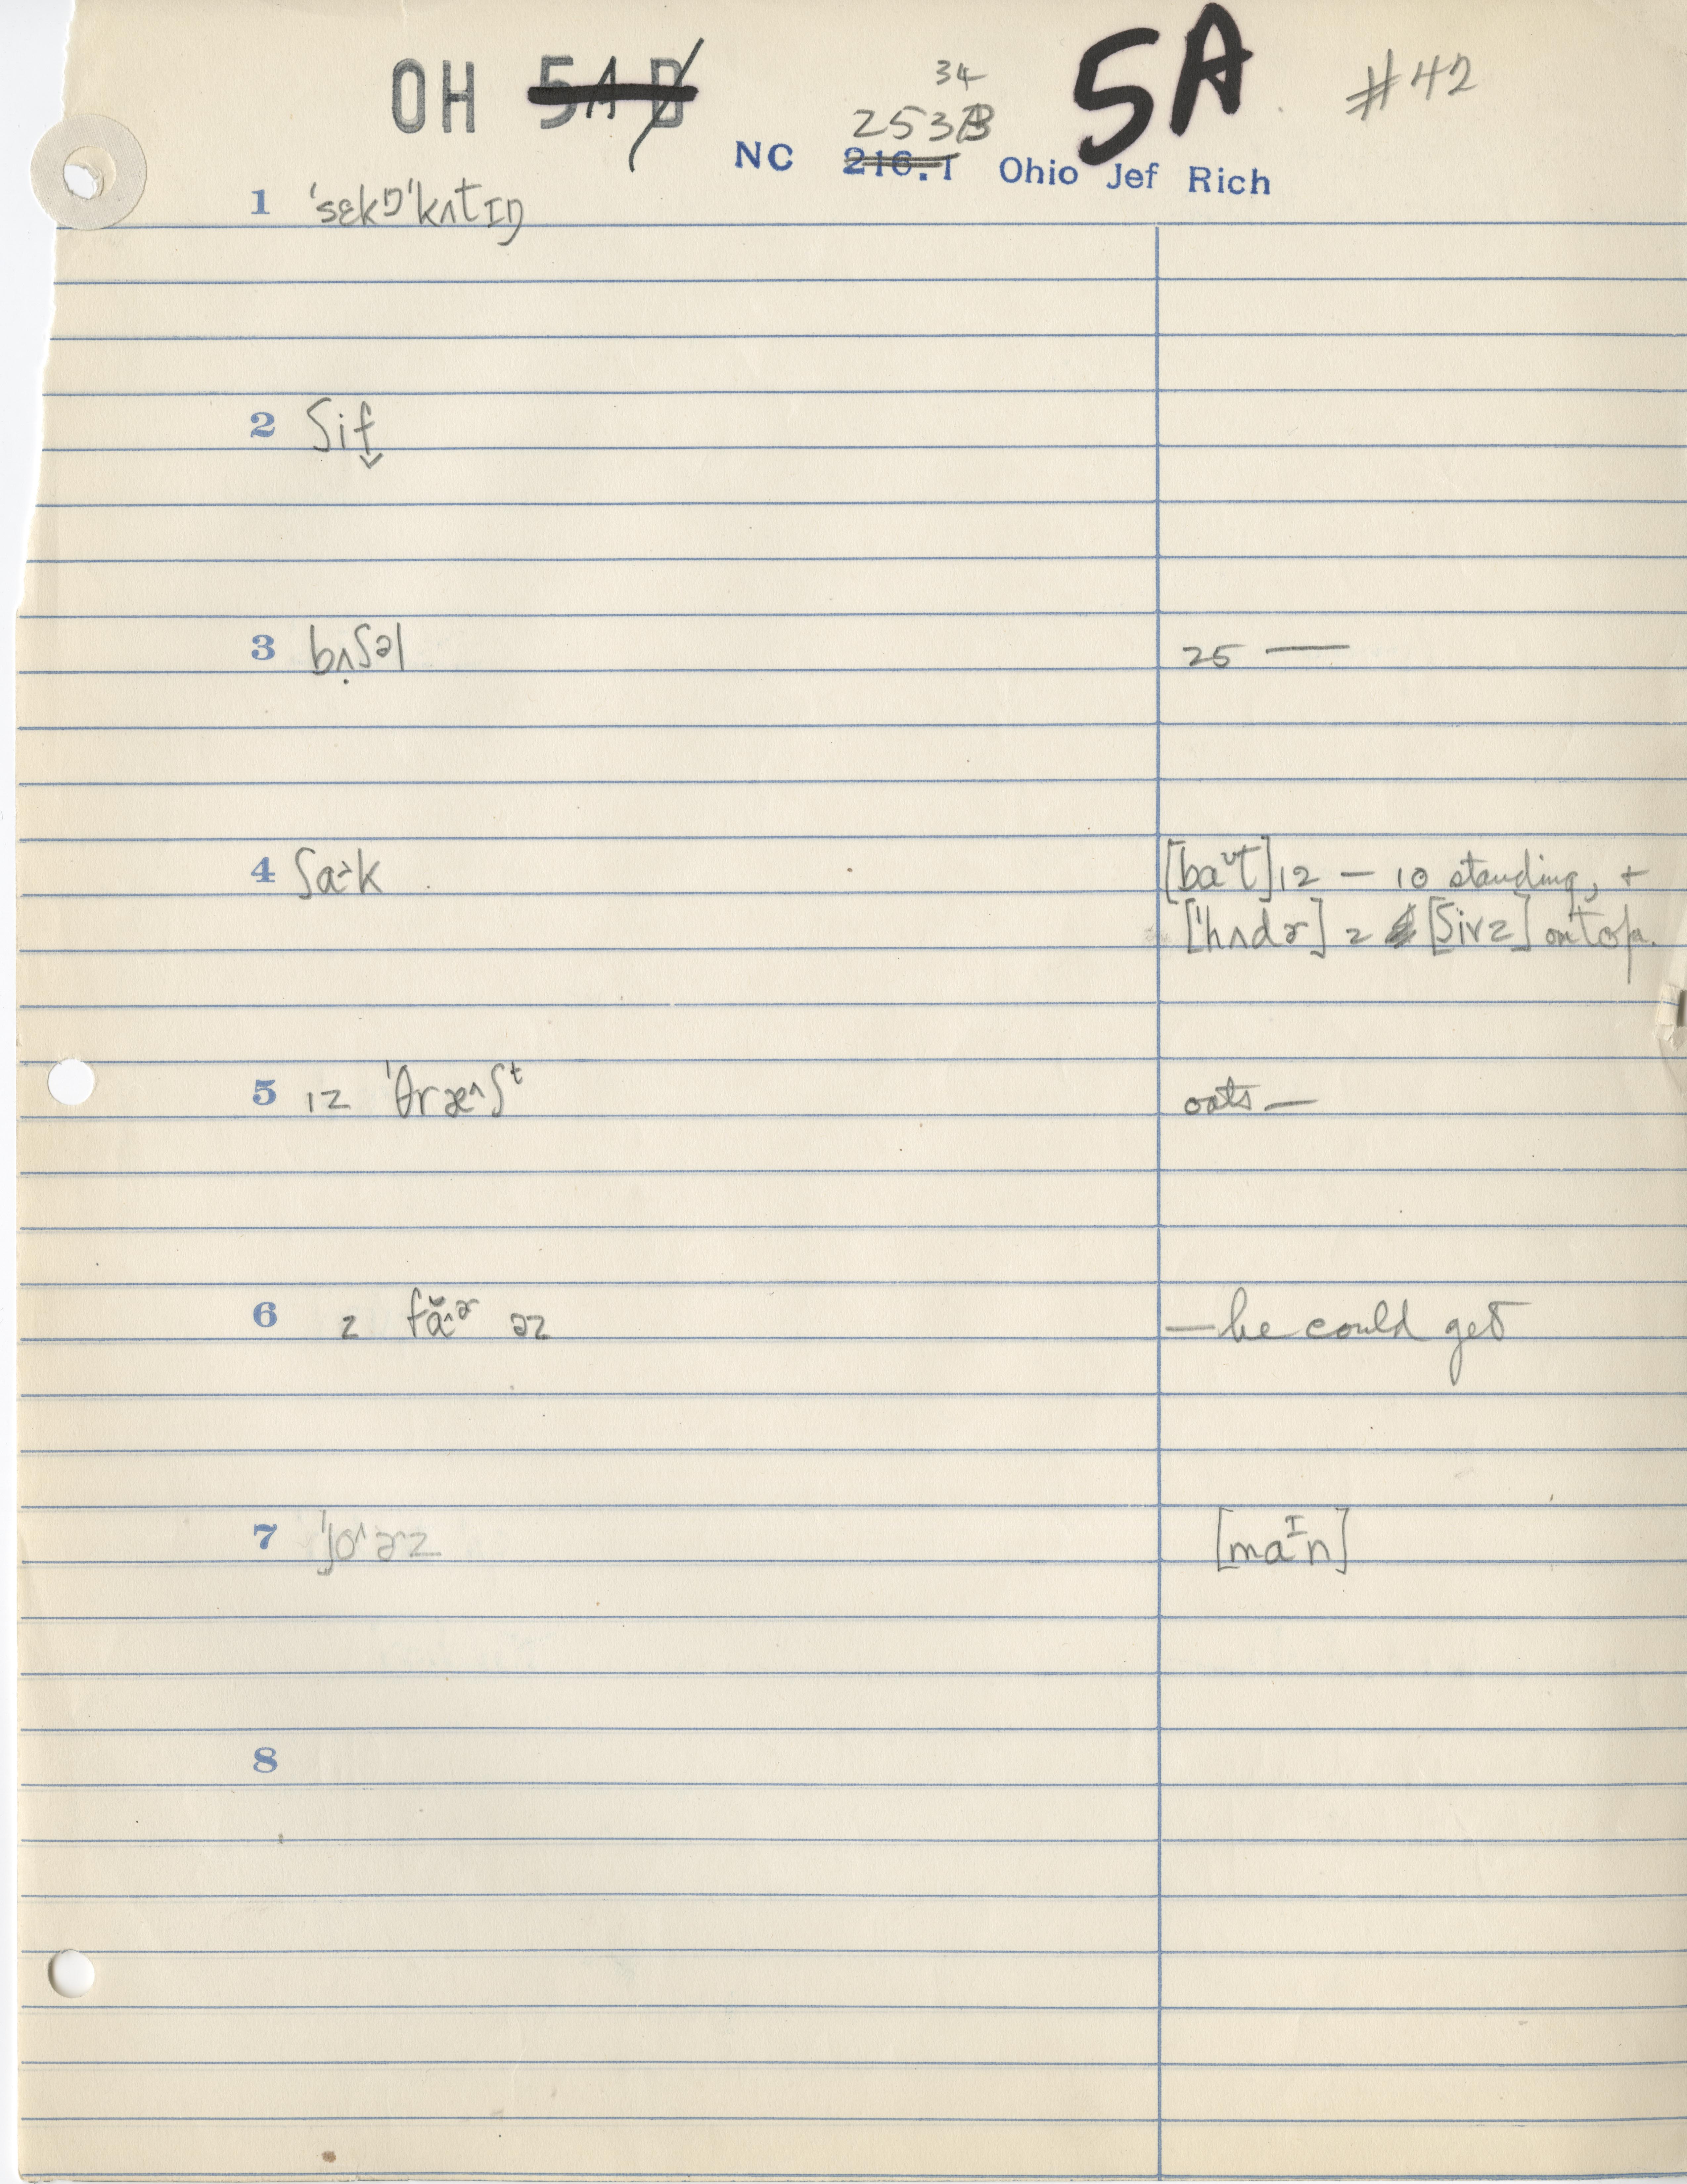 OH 5AB 34 5A #42
253B
NC 216.1 Ohio Jef Rich
1 'sɛkŋ'kʌtɪŋ
2 ʃif̬
3 bʌ̣ʃəl 25 —
4 ʃa˃k [baᶷt] 12 — 10 standing, +
['hʌdɚ] 2 [ʃivz] on top.
5 ɪz 'θræ^ʃᵗ oats —
6 z fă^ɚ əz — he could get
7 'jo^ɚz [maᴵn]
8